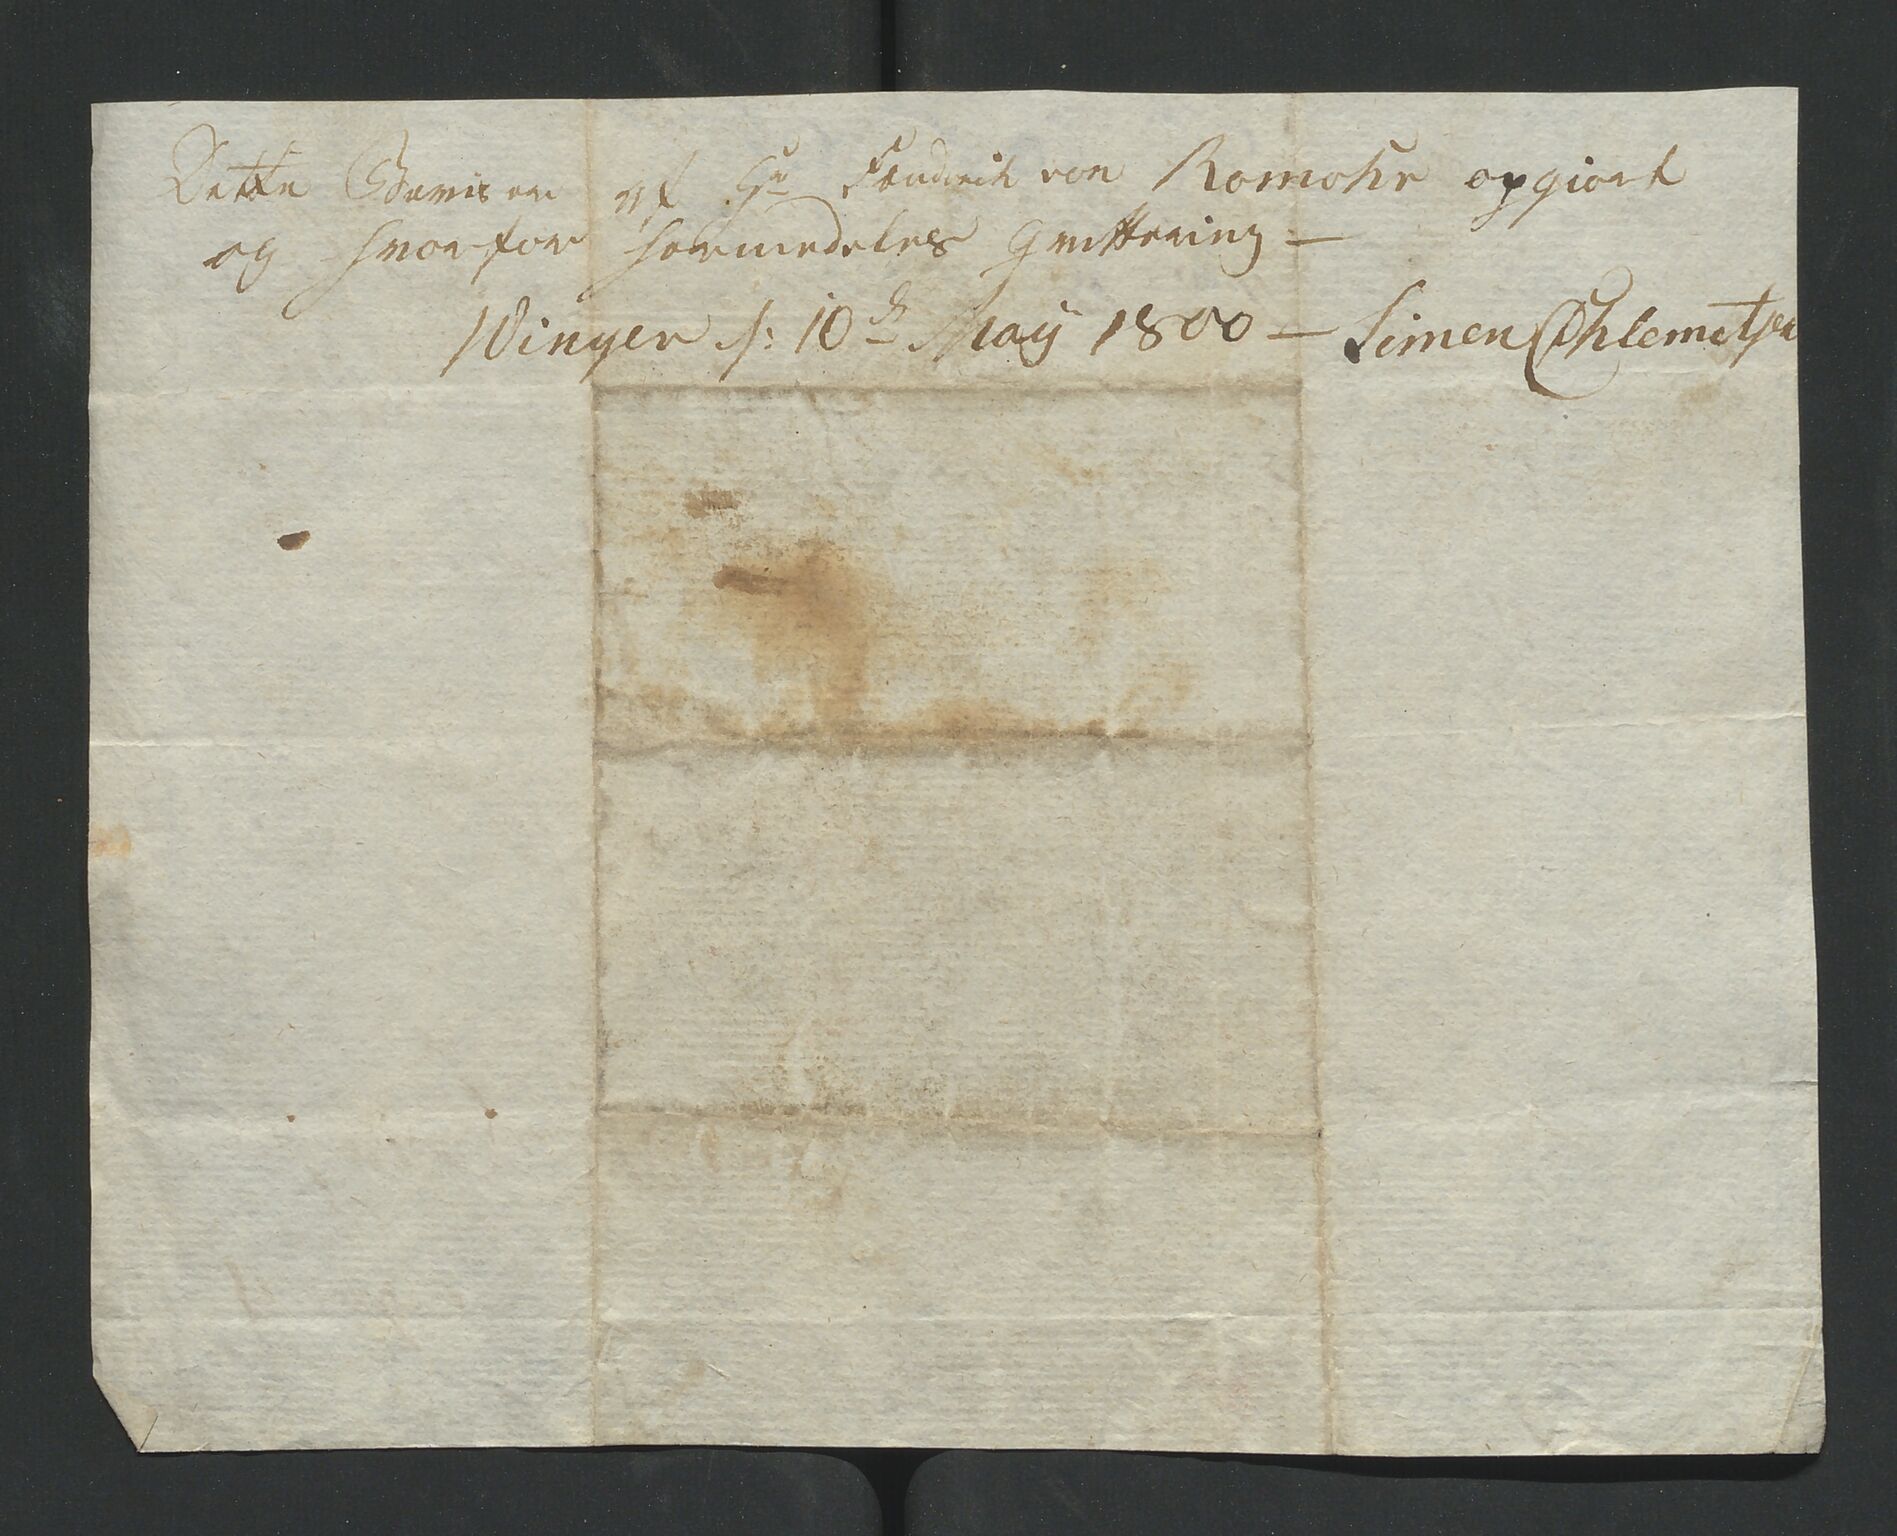 Dette Beviis er af Hr Fændrich von Romohr opgiort
og hvorfor hermedeles Qvittering —
Winger d: 10de May 1800 — Simen Ohlematsen